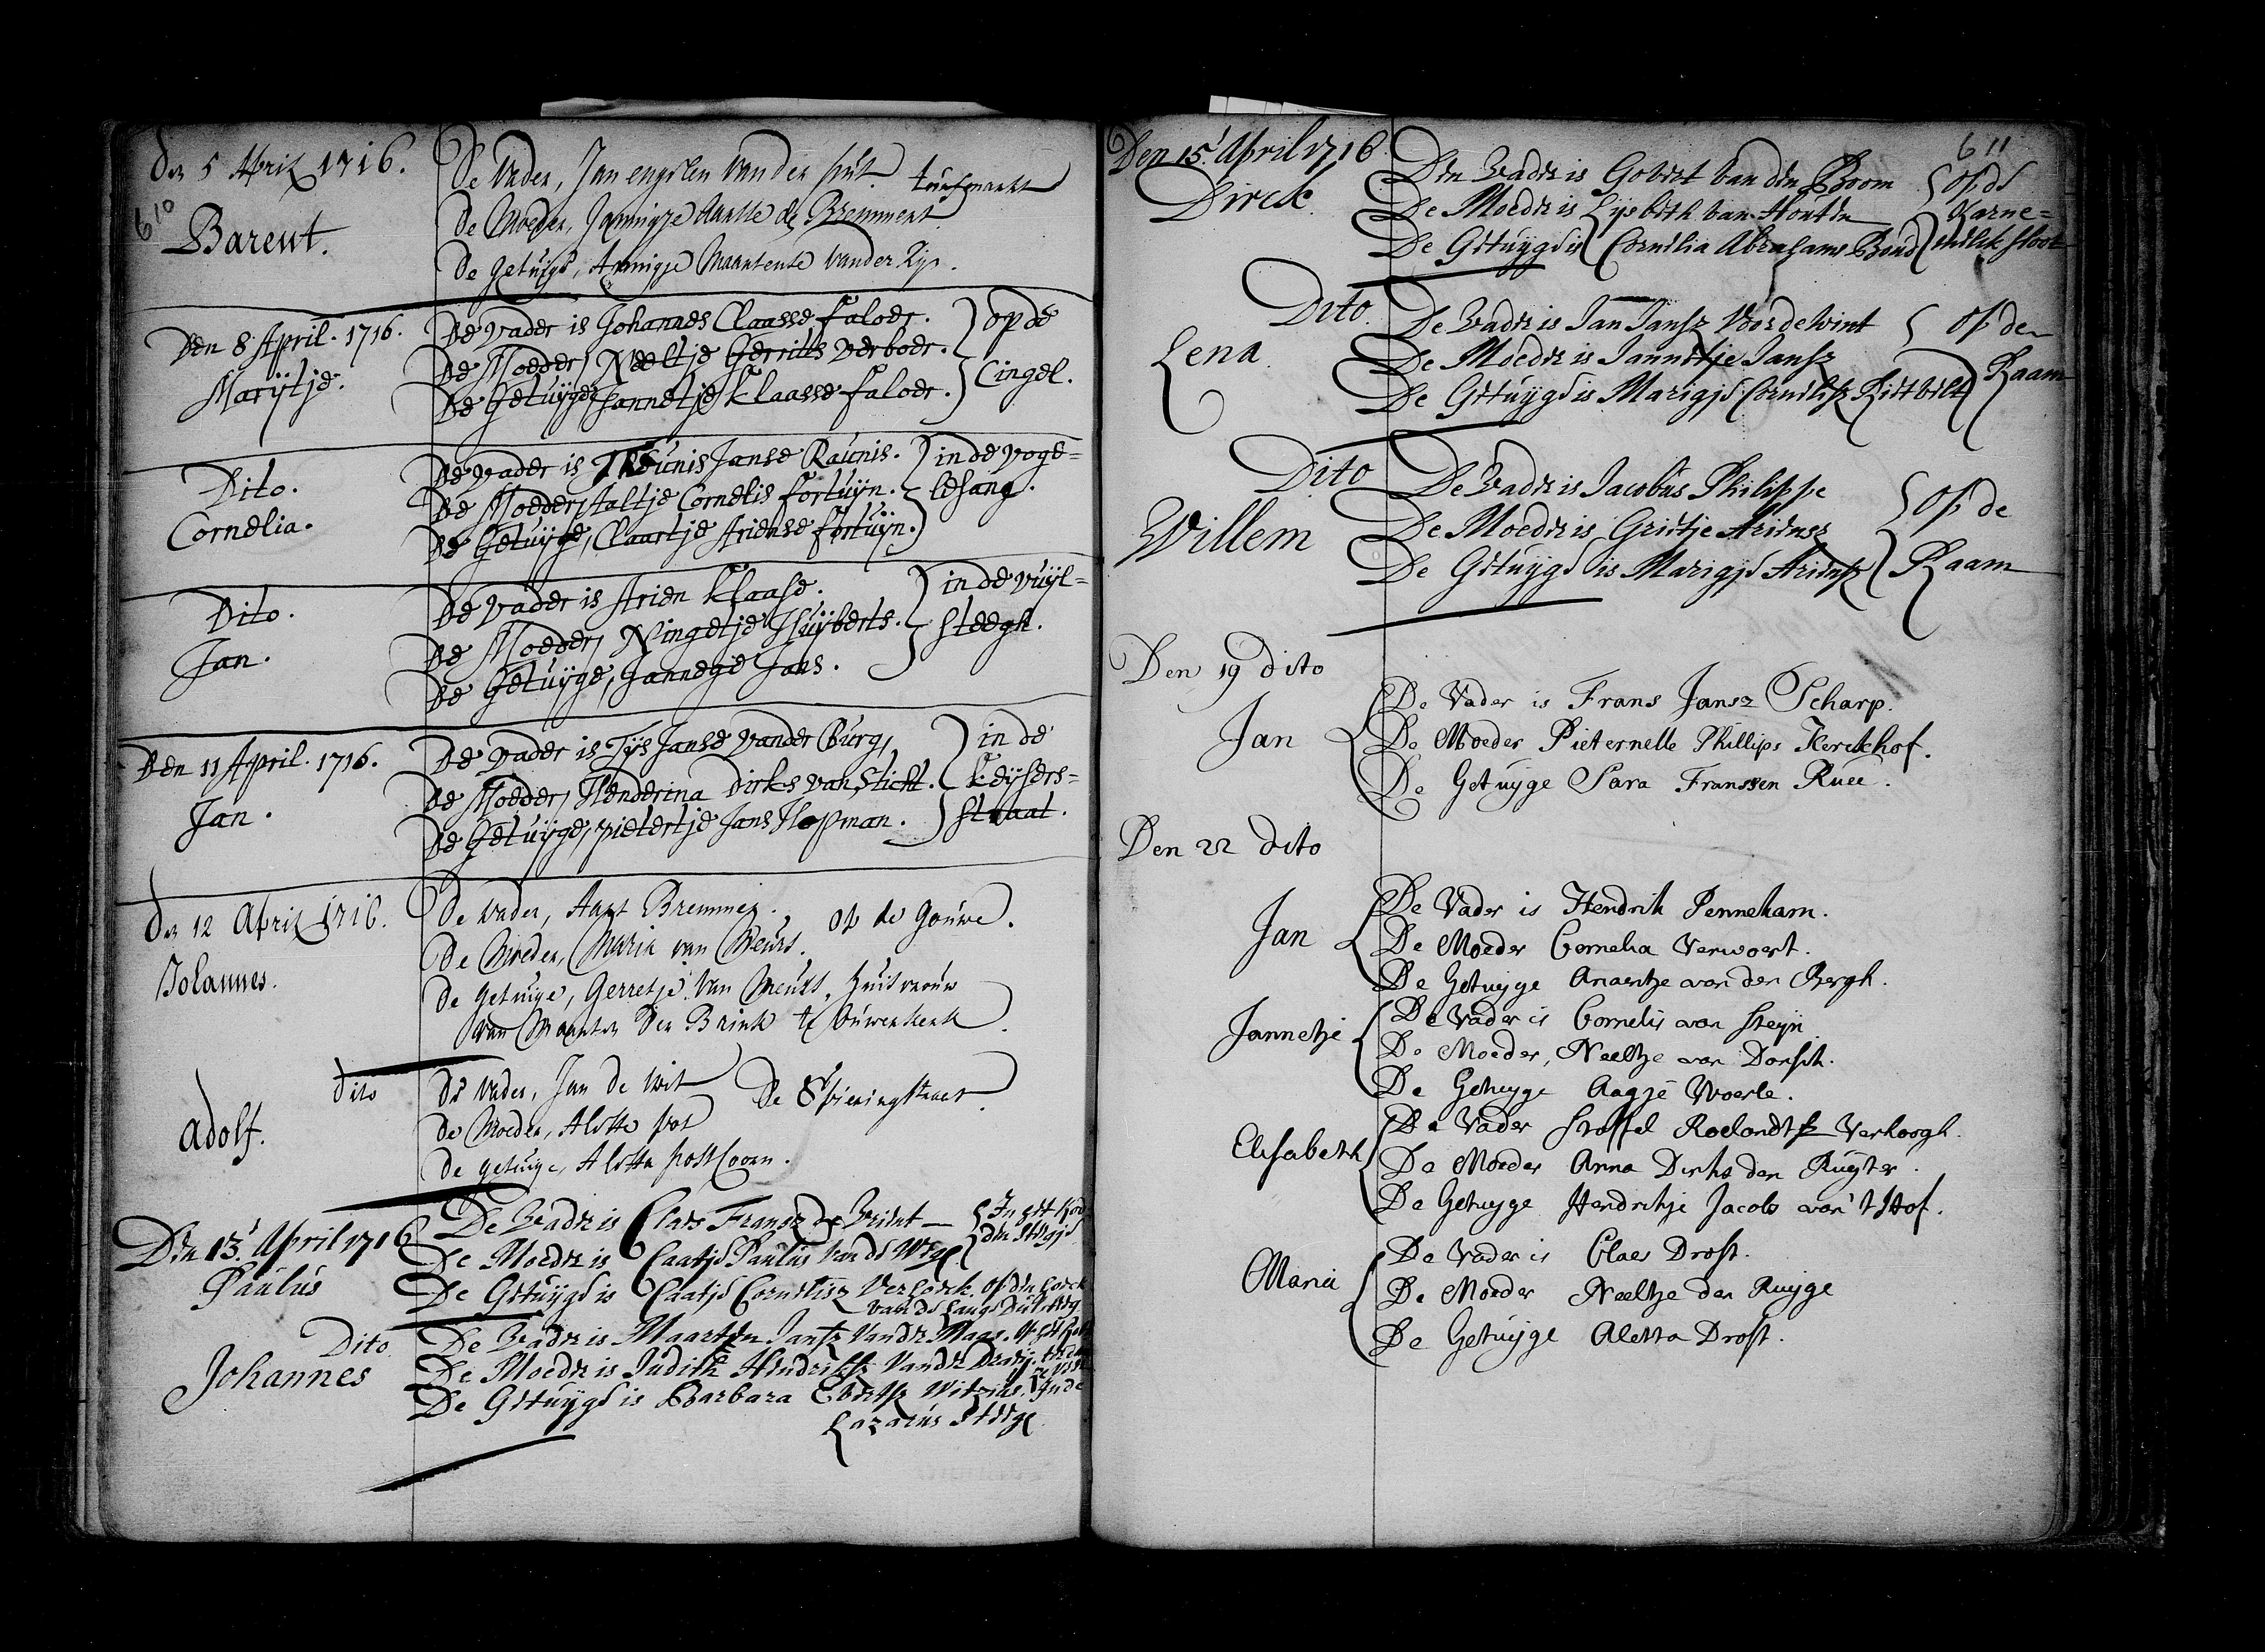 610
den 5 April 1716.
Barent.
De Vader, Jan engelen Van der put. turfmarkt
De Moeder, Jannigje Aartse de Bremmert
De getuige, Annigje Maartense Vander Zijp.
Den 8 April. 1716.
Marÿtje.
De vader is Johannes Claasse faloer. } op de
De Moeder, Neeltje Gerrits verboer. } Cingel.
De Getuijge, Jannetje Klaasse faloer.
Dito.
Cornelia.
De vader is Theunis Janse Raunis. } in de voge=
De Moeder, Aaltje Cornelis fortuijn. } lesang.
De Getuijge, Claartje Ariense fortuijn.
Dito.
Jan.
De vader is Arien Klaase. } in de vuijl=
De Moeder, Ningetje Huijberts. } steegh.
De Getuijge, Jannege Jans.
Den 11 April. 1716.
Jan.
De vader is Tijs Janse vander Burg, } in de
De Moeder, Henderina Dirks van Sticht. } Keijsers=
De Getuijge, pietertje Jans Hopman. } straat.
den 12 April 1716.
Johannes.
De Vader, Aart Bremmer. op de Gouwe.
De Moeder, Maria van Meurs.
De getuige, Gerretje Van Meurs, huisvrouw
van Maarten Den Brink te Ouwerkerk
dito
Adolf.
De Vader, Jan de Wit De Spieringstraet.
De Moeder, Aletta pot
De getuige, Aletta post
Den 13 April 1716
Paulus
De Vader is Claes Fransz de Vrient { In het
De Moeder is Caatje Paulus Van de Weg {
De Getuijge is Caatje Cornelisz Verhoeck. op den hoeck
van de Lange
Dito
Johannes
De Vader is Maarten Jansz Vander Maas.
De Moeder is Judith Hendriksz Vander
De Getuijge is Barbara Evertsz In de
Lazarus Steege
611
Den 15 April 1716
Dirck
Den Vader is Gobert van den Boom { op de
De Moeder is Lijsbeth van Houten { Karne=
De Getuijge is Cornelia Abrahams { melck sloot
Dito
Lena
De Vader is Jan Jansz Voordewint { op den
De Moeder is Jannetje Jansz { Raam
De Getuijge is Marigje Cornelisz Rietvelt
Dito
Willem
De Vader is Jacobus Philippe { op de
De Moeder is Grietje Ariensz { Raam
De Getuijge is Marigje Ariensz
Den 19 dito
Jan
De Vader is Frans Jansz Scharp.
De Moeder Pieternelle Phillips Kerckhof.
De Getuyge Sara Franssen Ruee.
Den 22 dito
Jan
De Vader is Hendrik Penneham.
De Moeder Cornelia Verwoert.
De Getuyge Anaentje van den Bergh.
Jannetje
De Vader is Cornelis van Steyn
De Moeder, Neeltje van Donsch.
De Getuyge Aagje Woerle.
Elisabeth
De Vader Stoffel Roelandtsz Verhoogh.
De Moeder Anna Dirks den Ruyter.
De Getuyge Hendrikje Jacobs van 't Hof.
Maria
De Vader is Claes Drost.
De Moeder Neeltje den Ruyge
De Getuyge Aletta Drost.